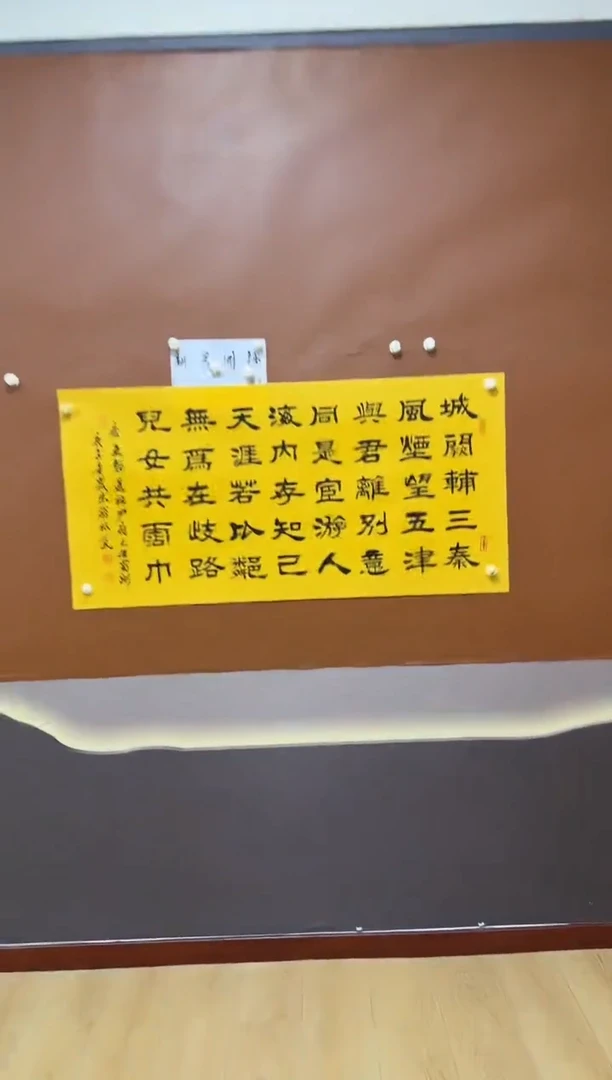 城闕輔三秦
風煙望五津
與君離別意
同是宦游人
海内存知己
天涯若比鄰
無爲在歧路
兒女共霑巾